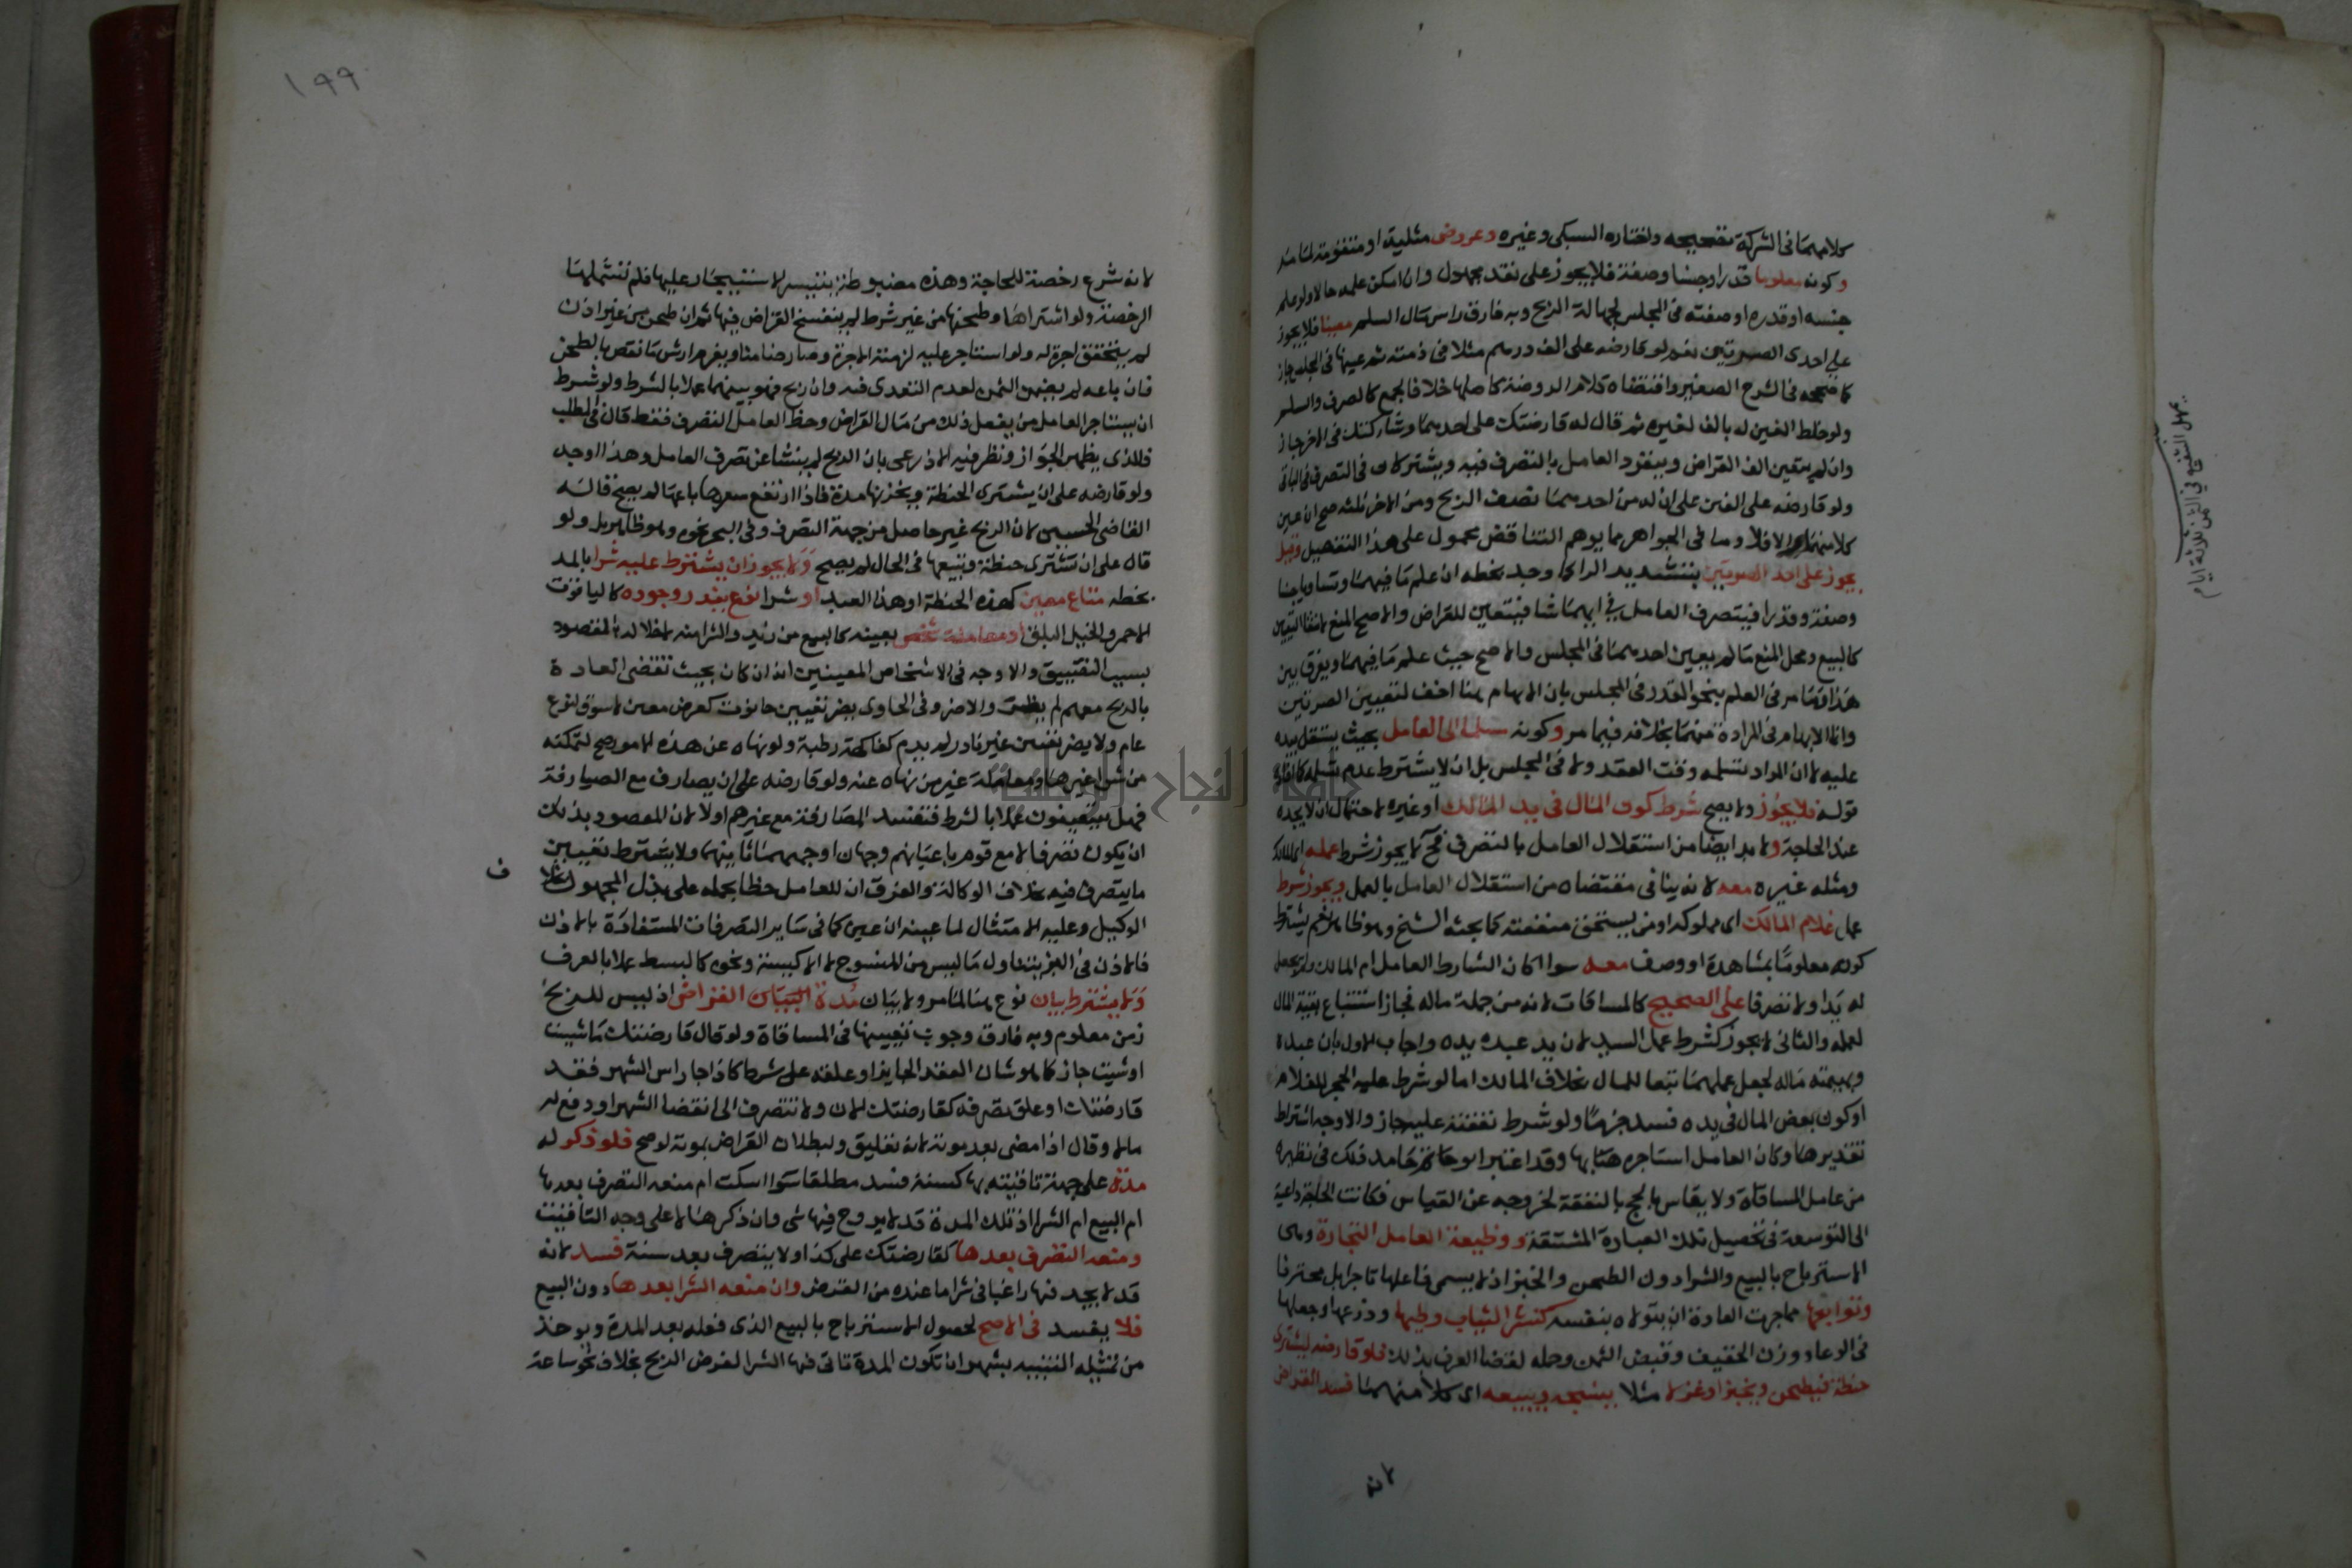 كلامهما في الشركة تصحيحه واختاره السبكي وغيره وعروض مثلية او متقومة لما مر
وكونه معلوما قدرا وجنسا وصفة فلا يجوز على نقد مجهول وان امكن علمه حالا ولو علم
جنسه او قدره او صفته في المجلس لجهالة الربح وبه فارق راس مال السلم معينا فلا يجوز
على احدى الصرتين نعم لو قارضه على الف درهم مثلا في ذمته ثم عينها في المجلس جاز
كما صححه في الشرح الصغير واقتضاه كلام الروضة كاصلها خلافا لجمع كالصرف والسلم
ولو خلط الفين له بالف لغيره ثم قال له قارضتك على احدهما وشاركتك في الاخر جاز
وان لم يتعين الف القراض وينفرد العامل بالتصرف فيه ويشتركان في التصرف في الباقي
ولو قارضه على الفين على ان له من احدهما نصف الربح ومن الاخر ثلثه صح ان عين
كلا منهما والا فلا وما في الجواهر مما يوهم التناقض محمول على هذا التفصيل وقيل
يجوز على احد الصرتين بتشديد الراء كما وجد بخطه ان علم ما فيهما وتساويا جنسا
وصفة وقدرا فيتصرف العامل في ايهما شا فيتعين للقراض والاصح المنع لانتفا التعيين
كالبيع ومحل المنع ما لم يعين احدهما في المجلس والا صح حيث علم ما فيهما ويفرق بين
هذا وما مر في العلم بنحو القدر في المجلس بان الابهام هنا اخف لتعيين الصرتين
وانما الابهام في المرادة منهما بخلافه فيما مر وكونه مسلما الى العامل بحيث يستقل بيده
عليه لا ان المراد تسلمه وقت العقد ولا في المجلس بل ان لا يشترط عدم تسلمه كما افاده
قوله فلا يجوز ولا يصح شرط كون المال في يد المالك او غيره لاحتمال ان لا يجده
عند الحاجة ولا بد ايضا من استقلال العامل بالتصرف فح لا يجوز شرط عمله اي المالك
ومثله غيره معه لانه ينافي مقتضاه من استقلال العامل بالعمل ويجوز شرط
عمل غلام المالك اي مملوكه او من يستحق منفعته كما بحثه الشيخ وهو ظاهر نعم يشترط
كونه معلوما بمشاهدة او وصف معه سوا كان الشارط العامل ام المالك ولم يجعل
له يدا ولا تصرفا على الصحيح كالمساقات لانه من جملة ماله فجاز استتباع بقية المال
لعمله والثاني لا يجوز كشرط عمل السيد لان يد عبده يده واجاب الاول بان عبده
وبهيمته ماله لجعل عملهما تبعا للمال بخلاف المالك اما لو شرط عليه الحجر للغلام
او كون بعض المال في يده فسد جزما ولو شرط نفقته عليه جاز والاوجه اشتراط
تقديرها وكان العامل استاجره هنا بها وقد اعتبر ابو حامد ذلك في نظيره
من عامل المساقاة ولا يقاس بالحج بالنفقة لخروجه عن القياس فكانت الحاجة داعية
الى التوسعة في تحصيل تلك العبارة المشتقة ووظيفة العامل التجارة وهي
الاسترباح بالبيع والشرا دون الطحن والخبز اذ لا يسمى فاعلها تاجرا بل محترفا
وتوابعها مما جرت العادة ان يتولاه بنفسه كنشر الثياب وطيها وذرعها وجعلها
في الوعا ووزن الخفيف وقبض الثمن وحمله لقضا العرف بذلك فلو قارضه ليشتري
حنطة فيطحن ويخبز او غزلا مثلا ينسجه ويبيعه اي كلا منهما فسد القراض
لانه
يمهل الشفيع في الثمن ثلاثة ايام
١٩٩
لانه شرع رخصة للحاجة وهذه مضبوطة يتيسر الاستيجار عليها فلم تشملهما
الرخصة ولو اشتراها وطحنها من غير شرط لم ينفسخ القراض فيها ثم ان طحن من غير اذن
لم يستحق اجرة له ولو استاجر عليه لزمته الاجرة وصار ضامنا ويغرم ارش ما نقص بالطحن
فان باعه لم يضمن الثمن لعدم التعدي فيه وان ربح فهو بينهما عملا بالشرط ولو شرط
ان يستاجر العامل من يفعل ذلك من مال القراض وحظ العامل التصرف فقط قال في المطلب
فالذي يظهر الجواز ونظر فيه الاذرعي بان الربح لم ينشا عن تصرف العامل وهذا اوجه
ولو قارضه على ان يشتري الحنطة ويخزنها مدة فاذا ارتفع سعرها باعها لم يصح قاله
القاضي الحسين لان الربح غير حاصل من جهة التصرف وفي البحر نحوه وهو ظاهر بل ولو
قال على ان تشتري حنطة وتبيعها في الحال لم يصح ولا يجوز ان يشترط عليه شرا بالمد
بخطه متاع معين كهذه الحنطة او هذا العبد او شرا نوع يندر وجوده كالياقوت
الاحمر والخيل البلق او معاملة شخص بعينه كالبيع من زيد والشرا منه لاخلاله بالمقصود
بسبب التضييق والاوجه في الاشخاص المعينين انه ان كان بحيث تقضي العادة
بالربح معهم لم يضر والا ضر وفي الحاوي يضر تعيين حانوت كعرض معين لا سوق لنوع
عام ولا يضر تعيين غير نادر لم يدم كفاكهة رطبة ولو نهاه عن هذه الامور صح لتمكنه
من شرا غيرها ومعاملة غير من نهاه عنه ولو قارضه على ان يصارف مع الصيارفة
فهل يتعينون عملا بالشرط فتفسد المصارفة مع غيرهم او لا لان المقصود بذلك
ان يكون تصرفا لا مع قوم باعيانهم وجهان اوجههما ثانيهما ولا يشترط تعيين
ما يتصرف فيه بخلاف الوكالة والفرق ان للعامل حظا يحمله على بذل المجهود بخلاف
ف
الوكيل وعليه الامتثال لما عينه ان عين كما في ساير التصرفات المستفادة بالاذن
فالاذن في البز يتناول ما يلبس من المنسوج لا الاكيسة ونحوه كالبسط عملا بالعرف
ولا يشترط بيان نوع هنا لما مر ولا بيان مدة القراض اذ ليس للربح
زمن معلوم وبه فارق وجوب تعيينها في المساقاة ولو قال قارضتك ما شيت
او شيت جاز كما هو شان العقد الجايز او علقه على شرط كاذا جا راس الشهر فقد
قارضتك او علق تصرفه كقارضتك الان ولا تتصرف الى انقضا الشهر او دفع له
مالا وقال اذا مضى بعد موته لانه تعليق ولبطلان القراض بموته لو صح فلو ذكر له
مدة على جهة تاقيته بها كسنة فسد مطلقا سوا اسكت ام منعه التصرف بعدها
ام البيع ام الشرا اذ تلك المدة قد لا يروج فيها شي وان ذكرها لا على وجه التاقيت
ومنعه التصرف بعدها كقارضتك على كذا ولا يتصرف بعد سنة فسد لانه
قد لا يجد فيها راغبا في شرا ما عنده من القرض وان منعه الشرا بعدها دون البيع
فلا يفسد في الاصح لحصول الاسترباح بالبيع الذي فعله بعد المدة ويوخذ
من تمثيله التنبيه بشهر ان تكون المدة تاتي فيها الشرا لغرض الربح بخلاف نحو ساعة